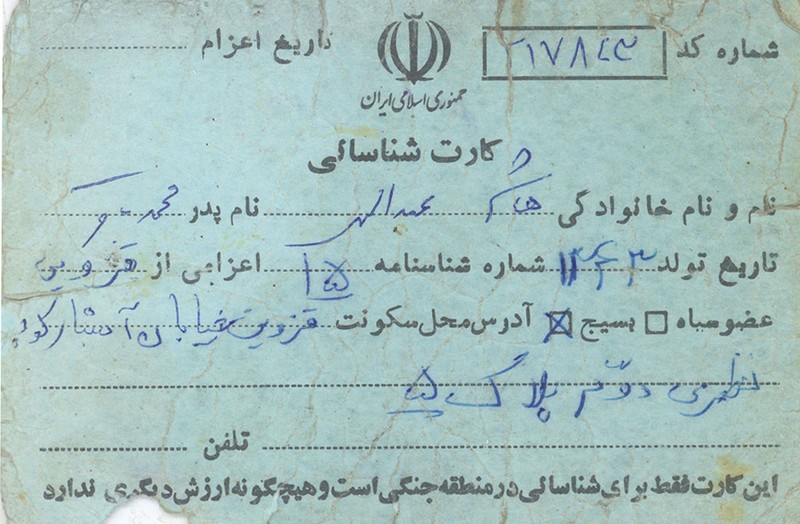 شماره کد ۲۱۷۸۴۳ تاریخ اعزام
جمهوری اسلامی ایران
کارت شناسائی
نام و نام خانوادگی نام پدر محمد
تاریخ تولد شماره شناسنامه ۱۵ اعزامی از قزوین
عضو سپاه بسیج آدرس محل سکونت قزوین خیابان کوچه
دوم پلاک ۵
تلفن
این کارت فقط برای شناسائی در منطقه جنگی است و هیچگونه ارزش دیگری ندارد